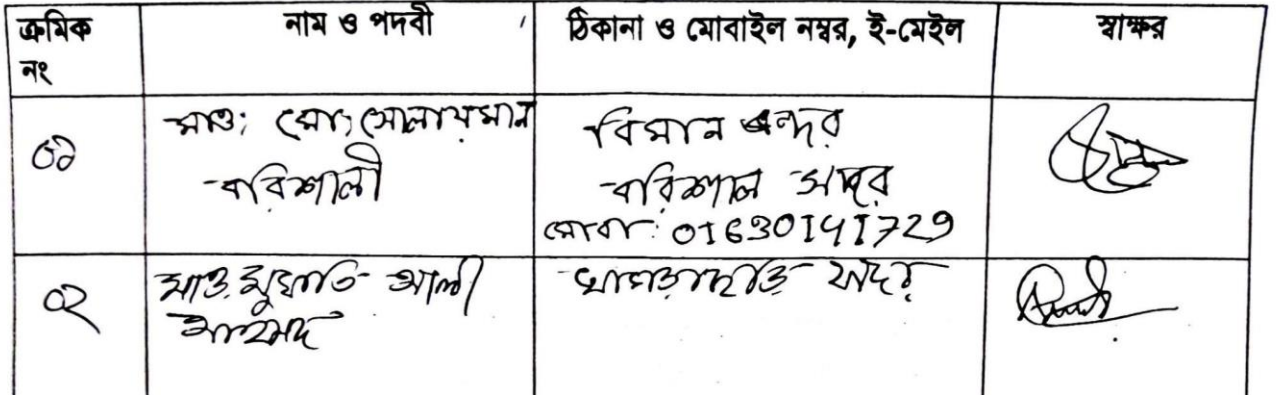 ক্রমিক নং	নাম ও পদবী	ঠিকানা ও মোবাইল নম্বর, ই-মেইল	স্বাক্ষর
০১
মাও: মো: সোলায়মান
বরিশালী
বিমান বন্দর
বরিশাল সদর
মোবা: 01630141729
০২
মাও. মুফতি আলী
আহমাদ
খাগড়াছড়ি সদর